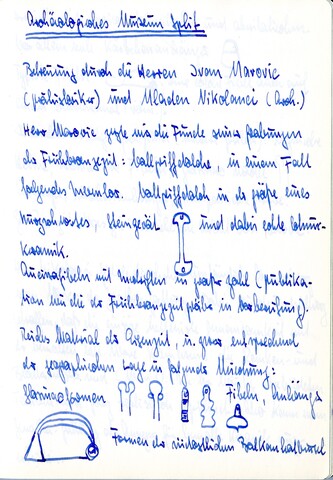 Archäologisches Museum Split.
Betreuung durch die Herren Ivan Marovic
(Prähistoriker) und Mladen Nikolanci (Arch.)
Herr Marovic zeigte mir die Funde seiner Grabungen
der Frühbronzezeit: Vollgriffdolche, in einem Fall
folgendes Inventar. Vollgriffdolch in der Größe eines
Kurzschwertes, Steingerät und dabei echte Schnur-
keramik.
Aucissafibeln mit Inschriften in großer Zahl (Publika-
tion wie die der Frühbronzezeitgräber in Vorbereitung).
Reiches Material der Eisenzeit, u. zwar entsprechend
der geographischen Lage in folgender Mischung:
Hallstattformen Fibeln, Anhänger
Formen der südöstlichen Balkanhalbinsel